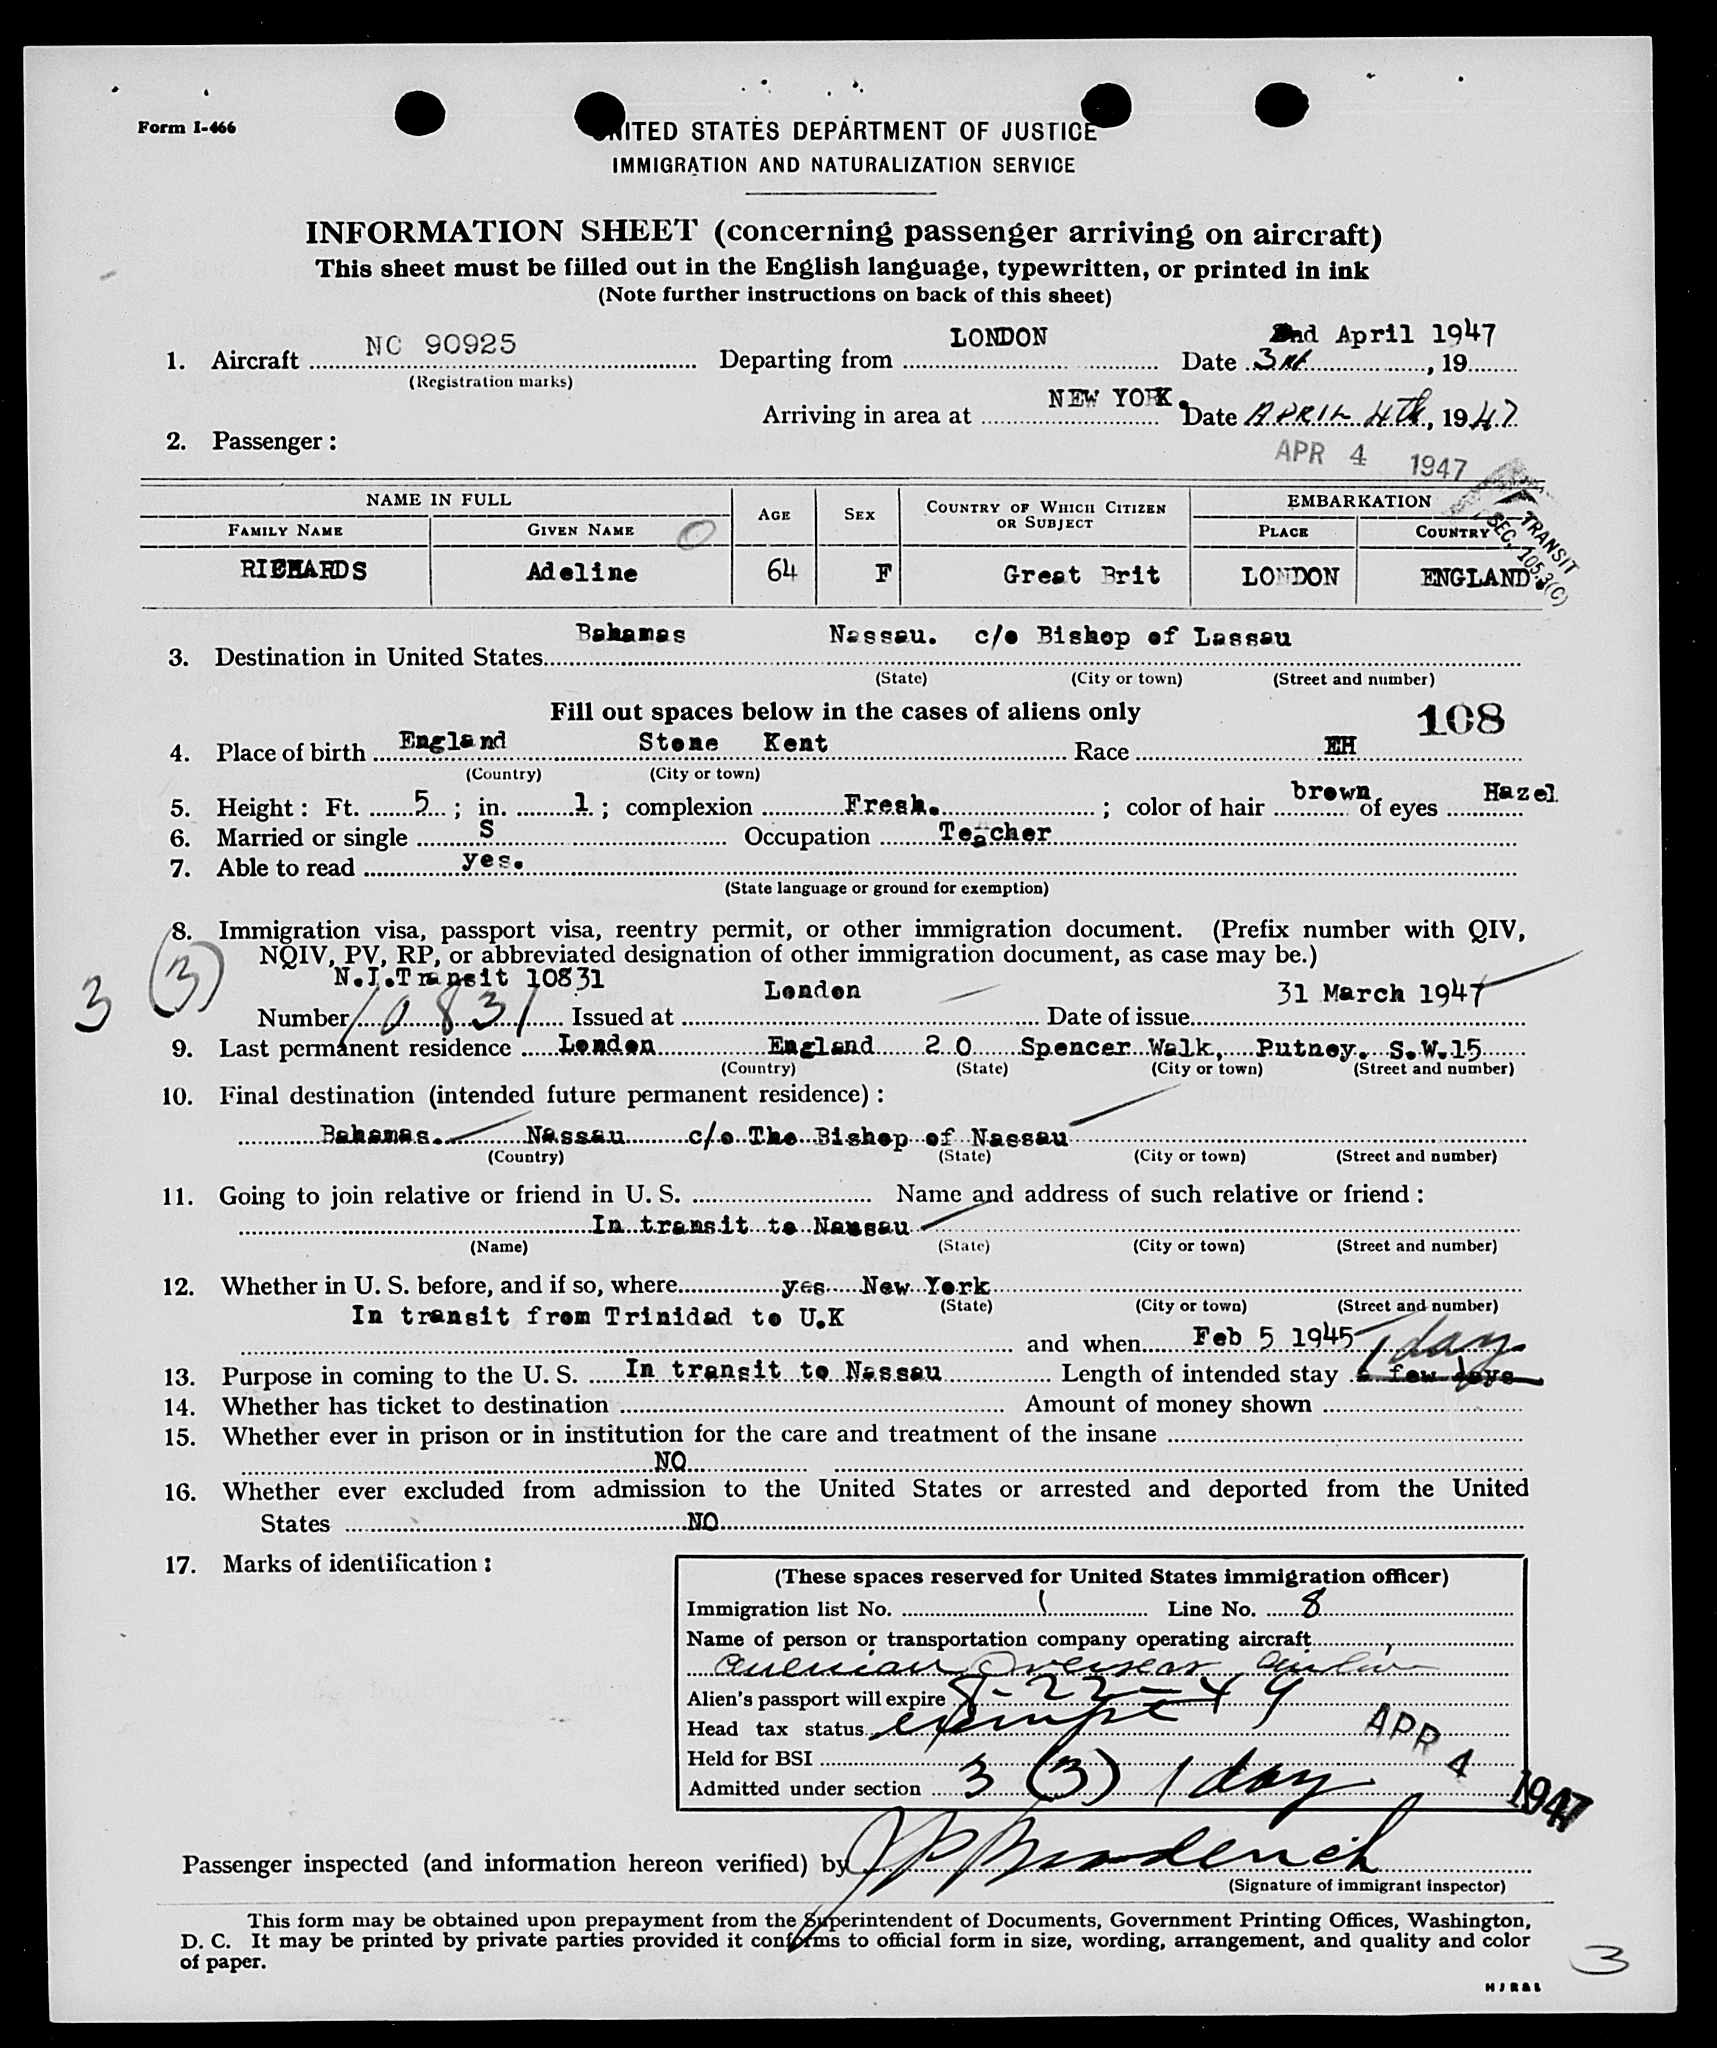 Form I-466
UNITED STATES DEPARTMENT OF JUSTICE
IMMIGRATION AND NATURALIZATION SERVICE
INFORMATION SHEET (concerning passenger arriving on aircraft)
This sheet must be filled out in the English language, typewritten, or printed in ink
(Note further instructions on back of this sheet)
1. Aircraft NC 90925 Departing from LONDON Date 3rd April 1947, 19
(Registration marks)
Arriving in area at NEW YORK. Date APRIL 4th, 1947
2. Passenger: APR 4 1947
NAME IN FULL AGE SEX COUNTRY OF WHICH CITIZEN OR SUBJECT EMBARKATION
FAMILY NAME GIVEN NAME PLACE COUNTRY
TRANSIT SEC. 105.3(C)
RICHARDS Adeline 64 F Great Brit LONDON ENGLAND.
3. Destination in United States Bahamas Nassau. c/o Bishop of Lassau
(State) (City or town) (Street and number)
Fill out spaces below in the cases of aliens only 108
4. Place of birth England Stone Kent Race EH
(Country) (City or town)
5. Height: Ft. 5; in. 1; complexion Fresh.; color of hair brown of eyes Hazel
6. Married or single S Occupation Teacher
7. Able to read yes.
(State language or ground for exemption)
8. Immigration visa, passport visa, reentry permit, or other immigration document. (Prefix number with QIV,
NQIV, PV, RP, or abbreviated designation of other immigration document, as case may be.)
3 (3)
N.I.Transit 10831 London 31 March 1947
Number 10831 Issued at Date of issue
9. Last permanent residence London England 20 Spencer Walk, Putney. S.W.15
(Country) (State) (City or town) (Street and number)
10. Final destination (intended future permanent residence):
Bahamas. Nassau c/o The Bishop of Nassau
(Country) (State) (City or town) (Street and number)
11. Going to join relative or friend in U. S. Name and address of such relative or friend:
In transit to Nassau
(Name) (State) (City or town) (Street and number)
12. Whether in U. S. before, and if so, where yes New York
(State) (City or town) (Street and number)
In transit from Trinidad to U.K
and when Feb 5 1945
13. Purpose in coming to the U. S. In transit to Nassau Length of intended stay a few days 1 day
14. Whether has ticket to destination Amount of money shown
15. Whether ever in prison or in institution for the care and treatment of the insane
NO
16. Whether ever excluded from admission to the United States or arrested and deported from the United
States NO
17. Marks of identification:
(These spaces reserved for United States immigration officer)
Immigration list No. 1 Line No. 8
Name of person or transportation company operating aircraft
American Overseas Airlines
Alien's passport will expire 8-22-49
Head tax status exempt
Held for BSI
Admitted under section 3 (3) 1 day
APR 4 1947
Passenger inspected (and information hereon verified) by
(Signature of immigrant inspector)
This form may be obtained upon prepayment from the Superintendent of Documents, Government Printing Offices, Washington,
D. C. It may be printed by private parties provided it conforms to official form in size, wording, arrangement, and quality and color
of paper.
3